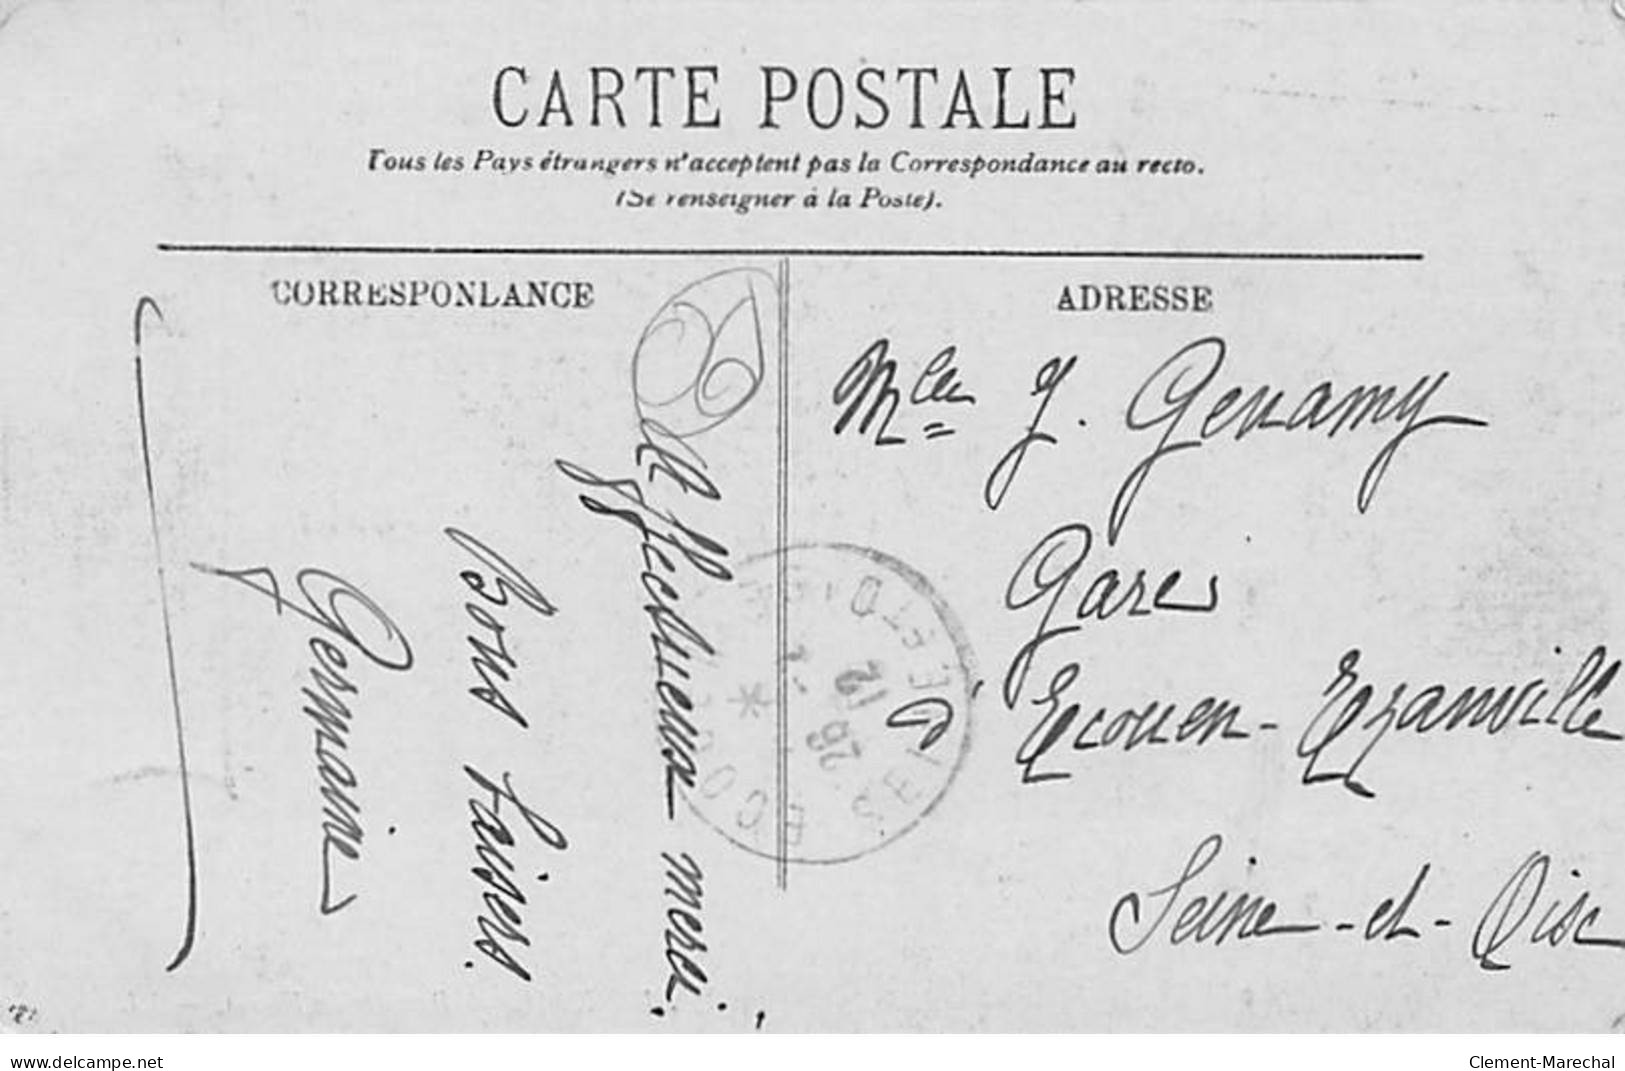 CARTE POSTALE
Tous les Pays étrangers n'acceptent pas la Correspondance au recto.
(Se renseigner à la Poste).
CORRESPONDANCE
ADRESSE
Affectueux merci.
Bons baisers.
Germaine
Mlle J. Genamy
Gare
d'Ecouen-Ezanville
Seine-et-Oise
ECOUEN
SEINE ET OISE
26
12
www.delcampe.net
Clement-Marechal